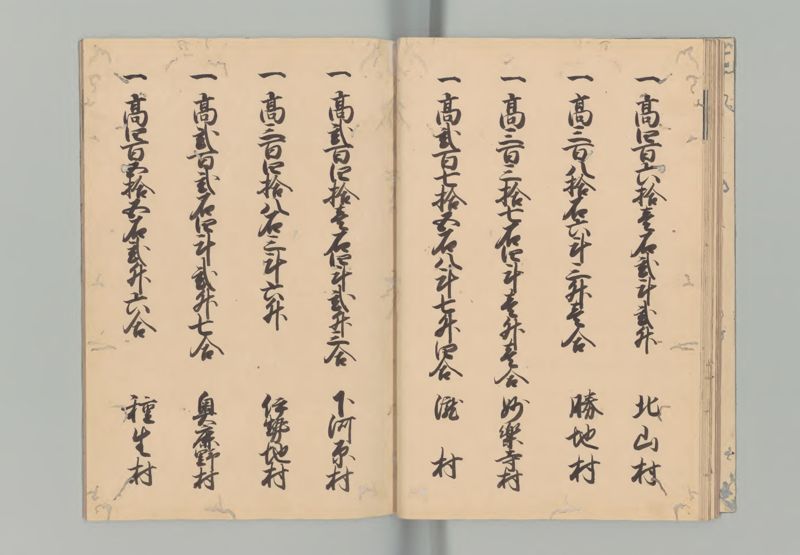 一高四百六拾壱石弐斗弐升 北山村
一高三百八拾石六斗三升壱合 勝地村
一高三百三拾七石四斗壱升壱合 妙楽寺村
一高弐百七拾五石八斗七升四合 瀧村
一高弐百四拾壱石四斗弐升三合 下河原村
一高三百四拾八石三斗六升 伊勢地村
一高弐百弐石四斗弐升七合 奥鹿野村
一高四百五拾五石弐升六合 種生村